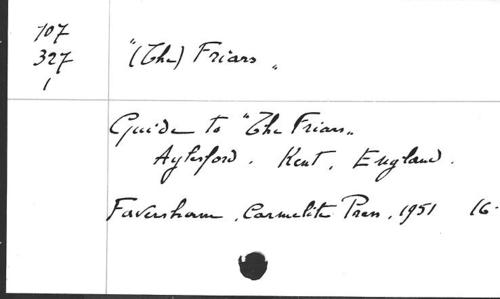 107
327
1
"(The) Friars"
Guide to "The Friars"
Aylesford. Kent, England.
Faversham, Carmelite Press, 1951 16-